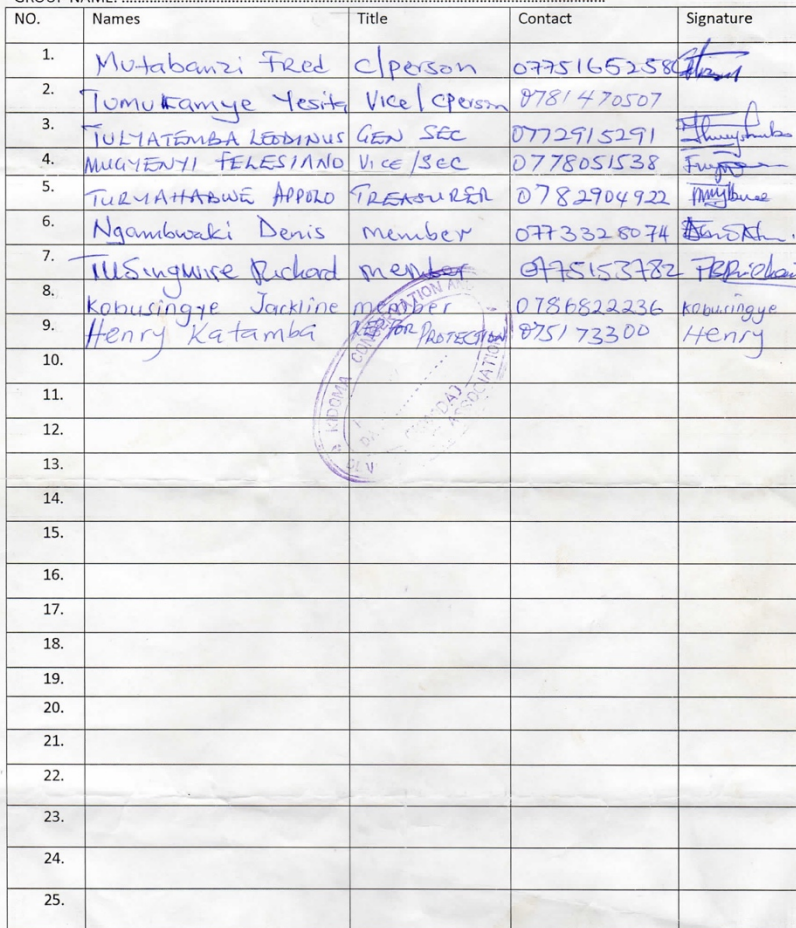 GROUP NAME: ........................
NO. Names Title Contact Signature
1. Mutabanzi Fred C/person 0775165258
2. Tumukamye Yesita Vice/cperson 0781470507
3. TULYATEMBA LEODINUS GEN SEC 0772915291
4. MUGYENYI FELESIANO Vice/sec 0778051538
5. TURYAHABWE APPOLO TREASURER 0782904922
6. Ngambwaki Denis member 0773328074
7. TUSingwire Richard member 0775153782
8. Kobusingye Jackline member - 0786822236 Kobusingye
9. Henry Katamba FOR PROTECTION 075173300 Henry
KIDOMA CONSERVATION AND
ASSOCIATION
10.
11.
12.
13.
14.
15.
16.
17.
18.
19.
20.
21.
22.
23.
24.
25.